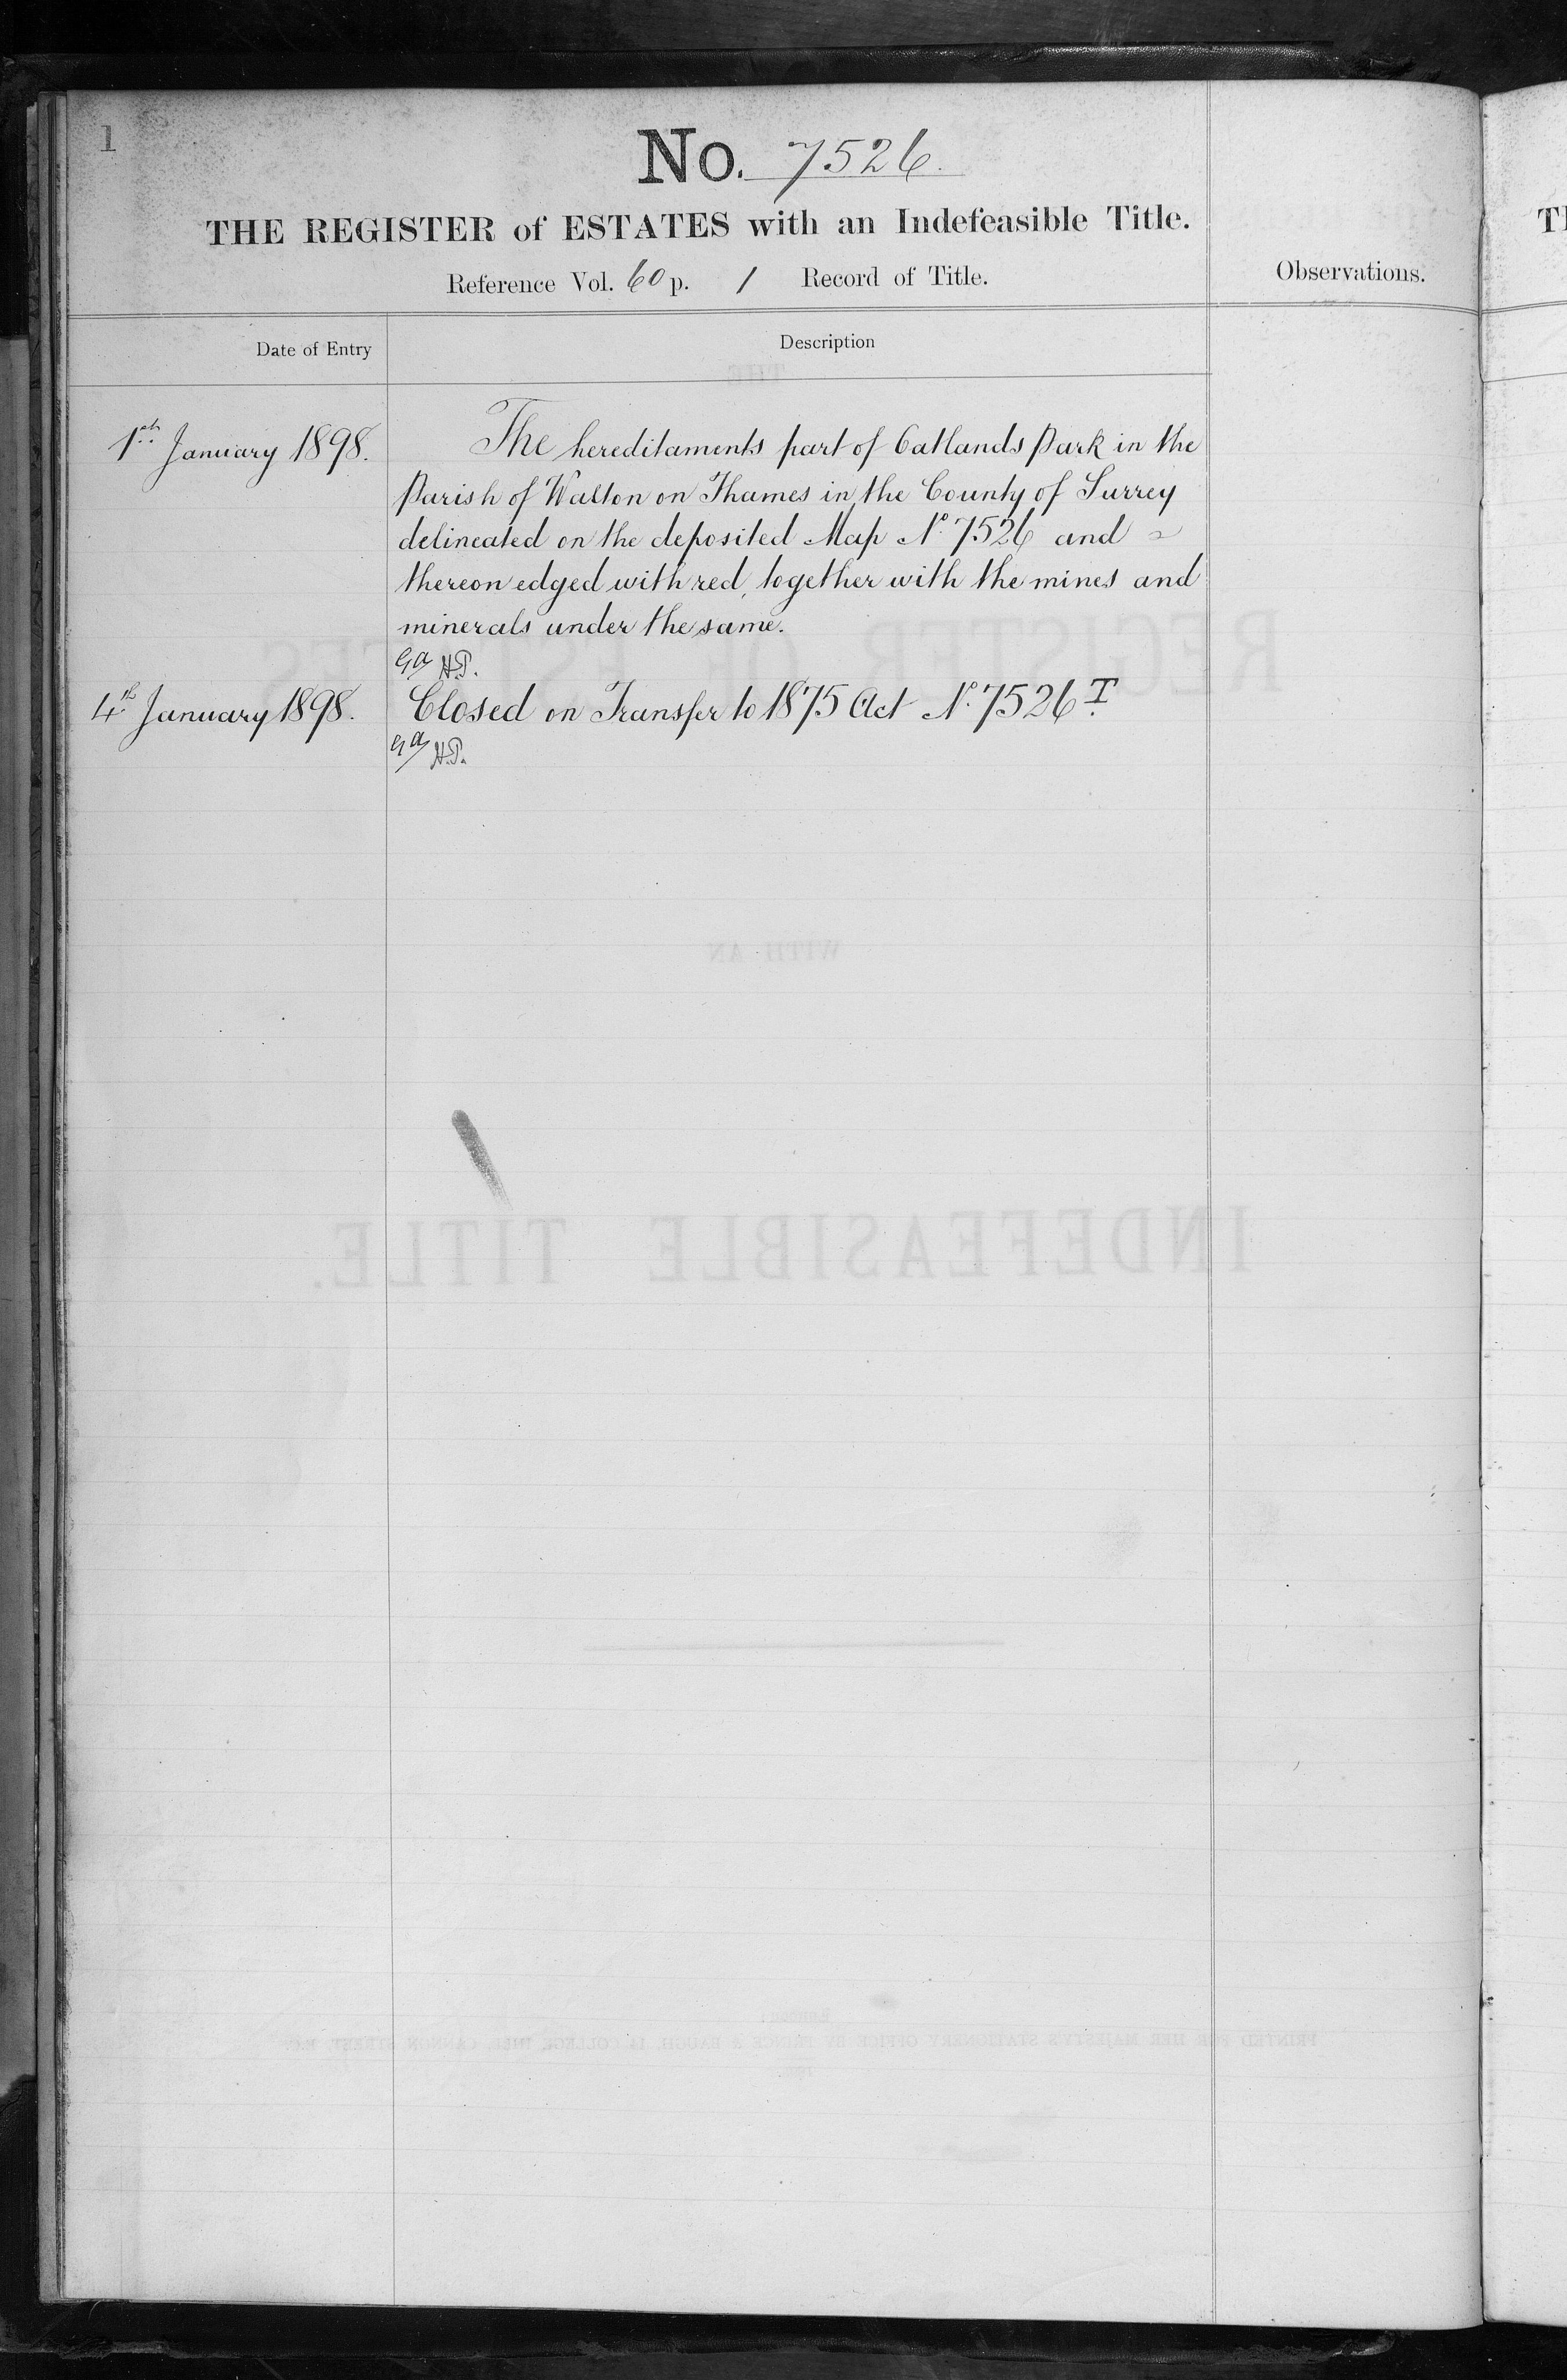 1
No. 7526.
THE REGISTER of ESTATES with an Indefeasible Title.
Reference Vol. 60 p. 1 Record of Title.
Observations.
Date of Entry
Description
1st January 1898.
The hereditaments part of Oatlands Park in the
Parish of Walton on Thames in the County of Surrey
delineated on the deposited Map No. 7526 and
thereon edged with red, together with the mines and
minerals under the same.
H.P.
4th January 1898.
Closed on Transfer to 1875 Act No. 7526 T.
H.P.